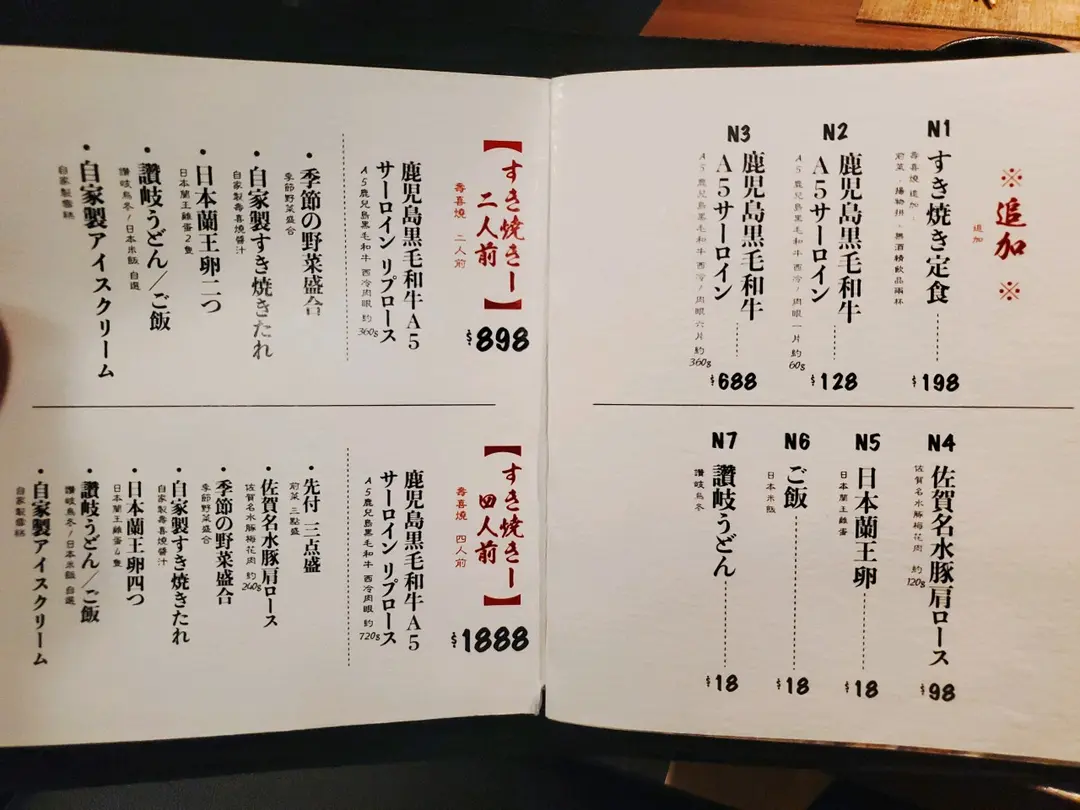 ※ 追加 ※
追加
N1
すき焼き定食
壽喜燒 追加
前菜．揚物拼．無酒精飲品兩杯
$198
N2
鹿児島黒毛和牛
A5サーロイン
A5鹿兒島黑毛和牛 西冷/肉眼 一片 約60g
$128
N3
鹿児島黒毛和牛
A5サーロイン
A5鹿兒島黑毛和牛 西冷/肉眼 六片 約360g
$688
N4
佐賀名水豚肩ロース
佐賀名水豚梅花肉 約120g
$98
N5
日本蘭王卵
日本蘭王雞蛋
$18
N6
ご飯
日本米飯
$18
N7
讃岐うどん
讚岐烏冬
$18
【すき焼きー
二人前】
壽喜燒 二人前
$898
鹿児島黒毛和牛A5
サーロイン リブロース
A5鹿兒島黑毛和牛 西冷肉眼 約360g
・季節の野菜盛合
季節野菜盛合
・自家製すき焼きたれ
自家製壽喜燒醬汁
・日本蘭王卵二つ
日本蘭王雞蛋2隻
・讃岐うどん／ご飯
讚岐烏冬/日本米飯 自選
・自家製アイスクリーム
自家製雪糕
【すき焼きー
四人前】
壽喜燒 四人前
$1888
鹿児島黒毛和牛A5
サーロイン リブロース
A5鹿兒島黑毛和牛 西冷肉眼 約720g
・先付 三点盛
前菜 三點盛
・佐賀名水豚肩ロース
佐賀名水豚梅花肉 約240g
・季節の野菜盛合
季節野菜盛合
・自家製すき焼きたれ
自家製壽喜燒醬汁
・日本蘭王卵四つ
日本蘭王雞蛋4隻
・讃岐うどん／ご飯
讚岐烏冬/日本米飯 自選
・自家製アイスクリーム
自家製雪糕